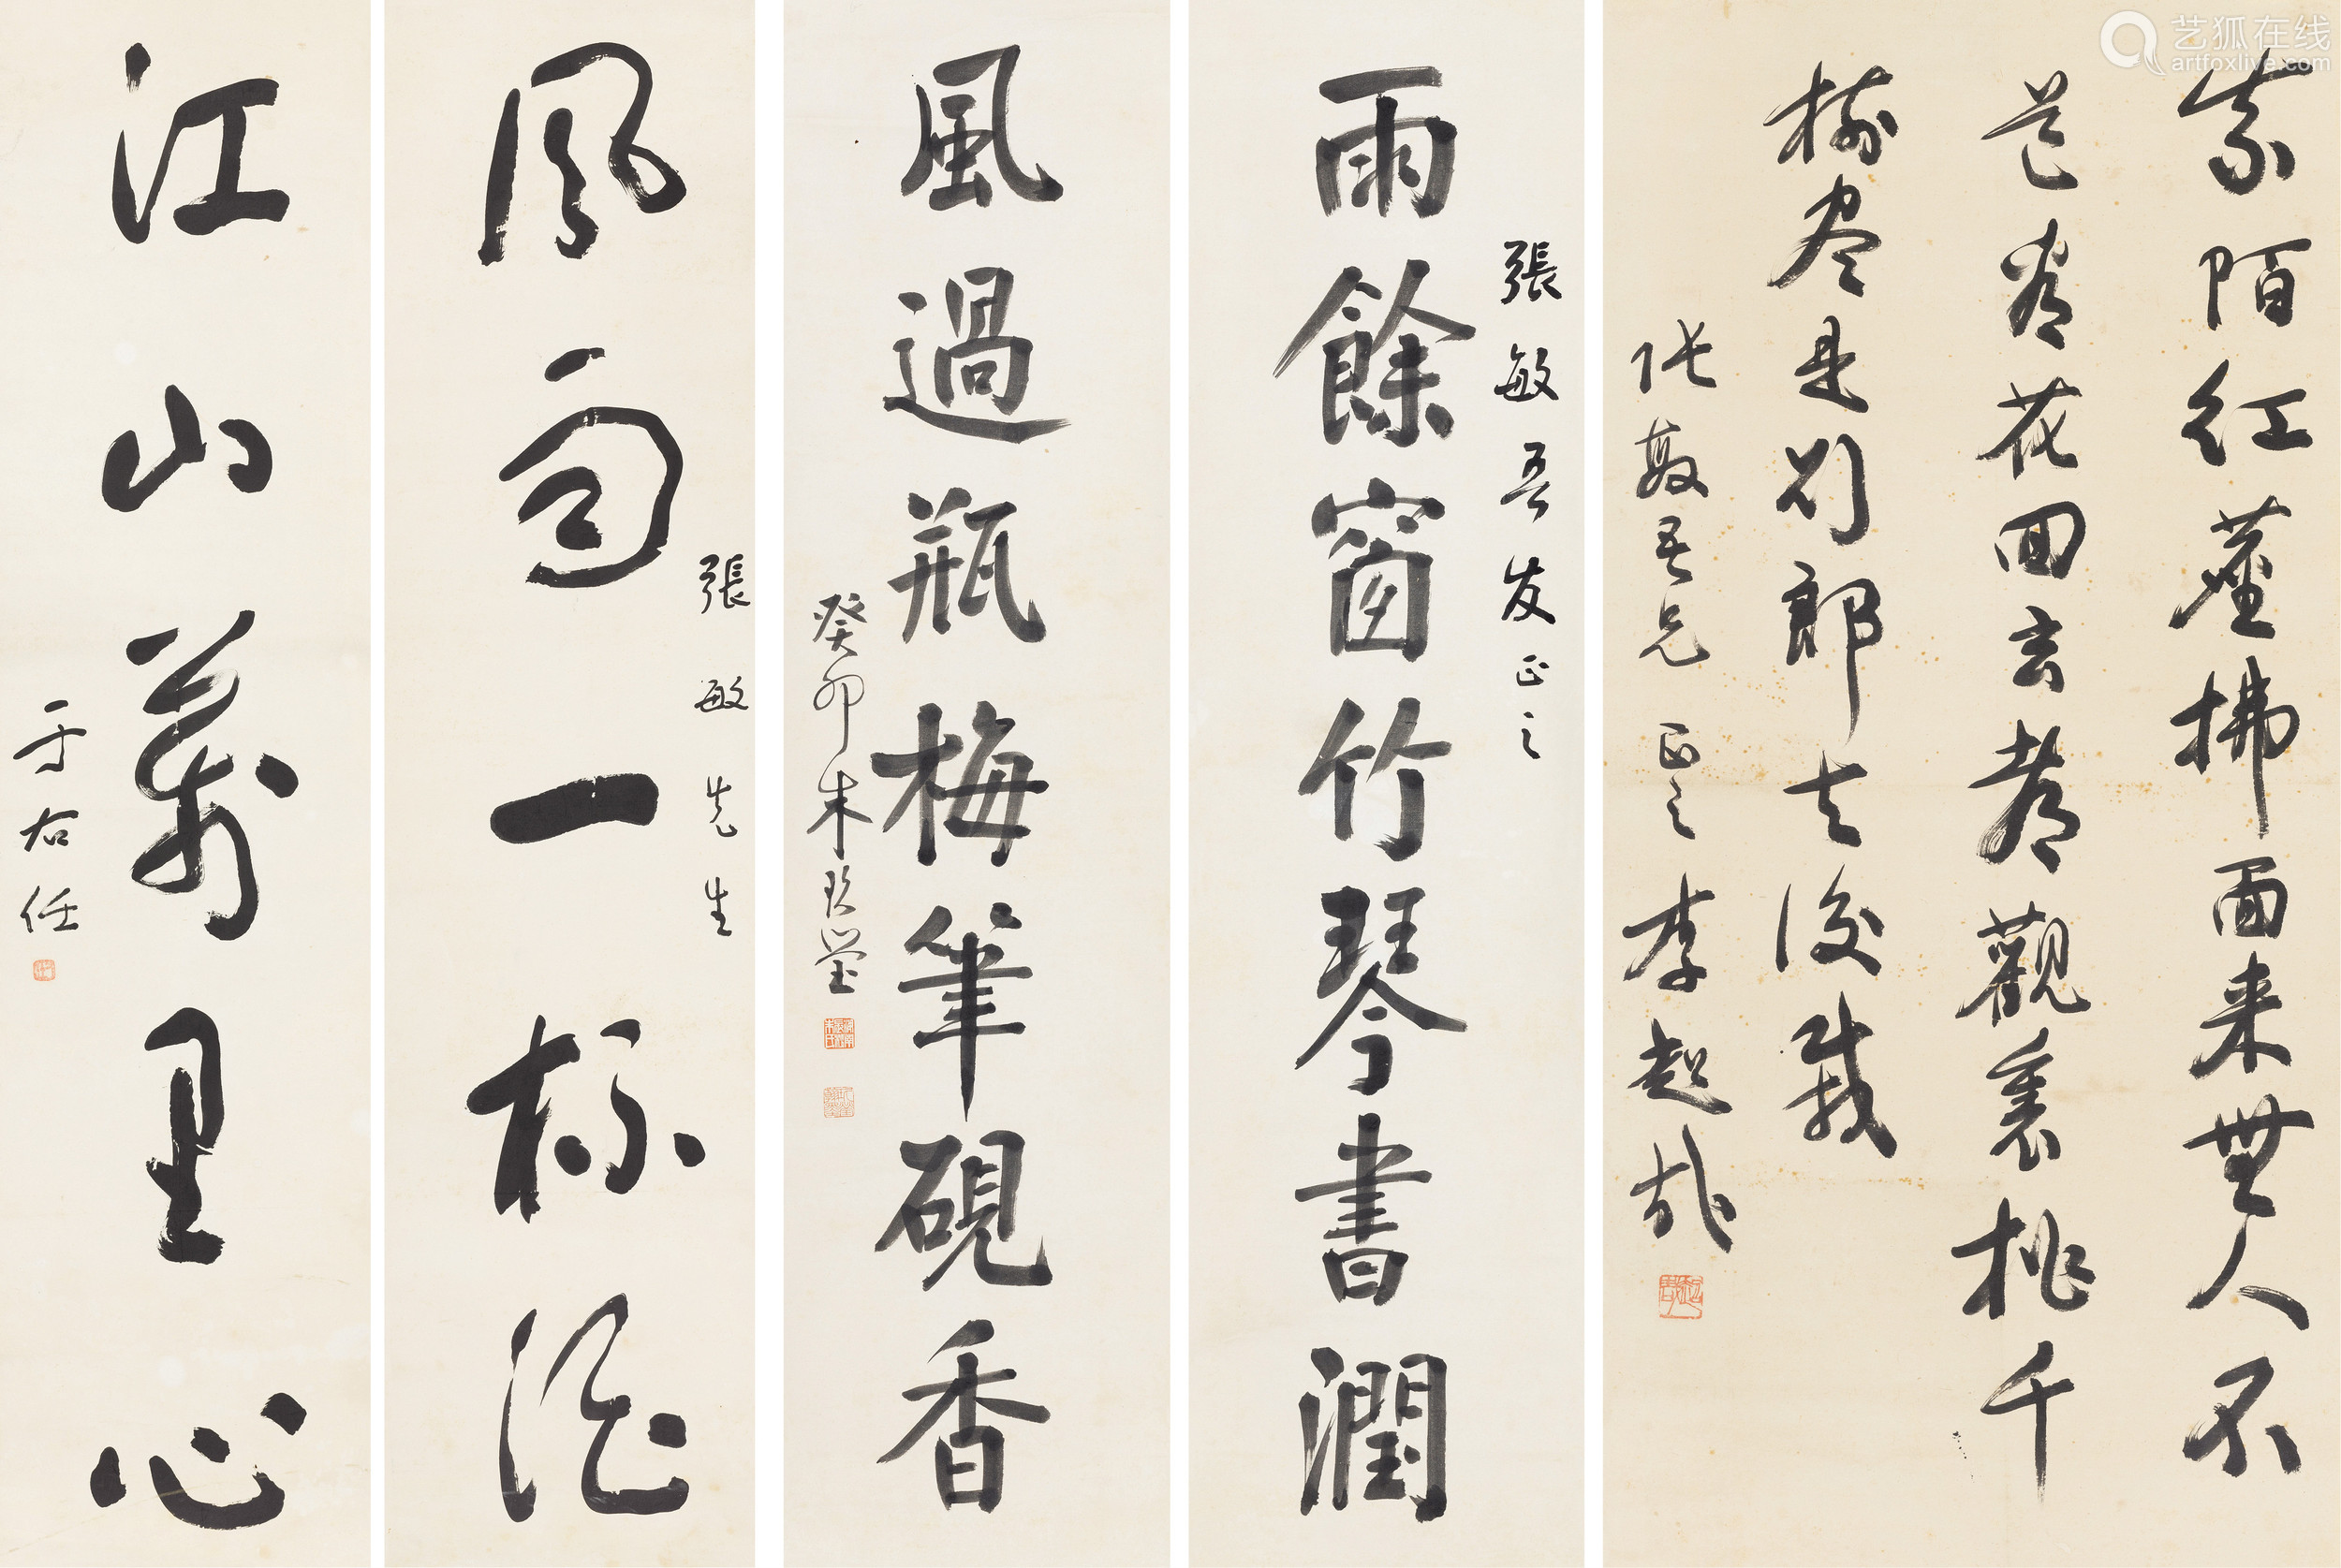 紫陌红塵拂面来無人不
道看花回玄都觀裏桃千
樹尽是刘郎去後栽
张敏吾兄 正之 李超哉
張敏吾友正之
雨餘窗竹琴書潤
風過瓶梅筆硯香
癸卯朱玖瑩
張敏先生
風雨一杯酒
江山萬里心
于右任
艺狐在线
artfoxlive.com